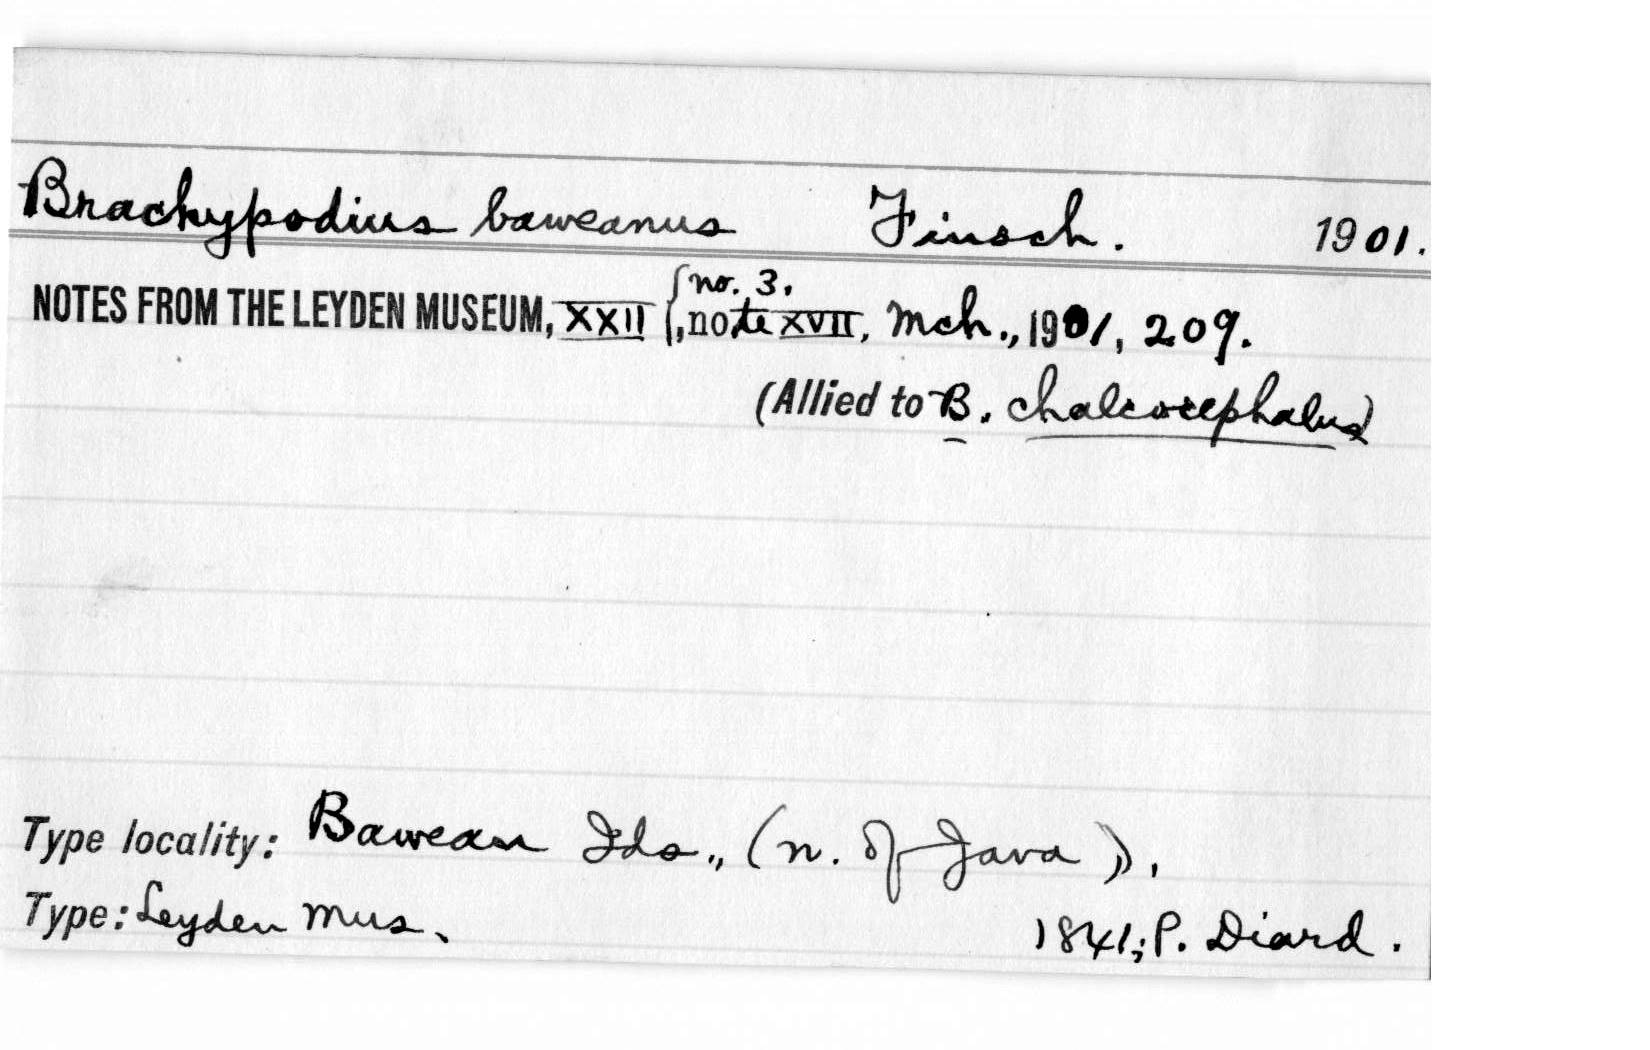 Brachypodius baweanus Finsch. 1901.
no. 3.
NOTES FROM THE LEYDEN MUSEUM, XXII {, note XVII, Mch., 1901, 209.
(Allied to B. chalcocephalus)
Type locality: Bawean Ids., (n. of Java).
Type: Leyden Mus. 1841; P. Diard.